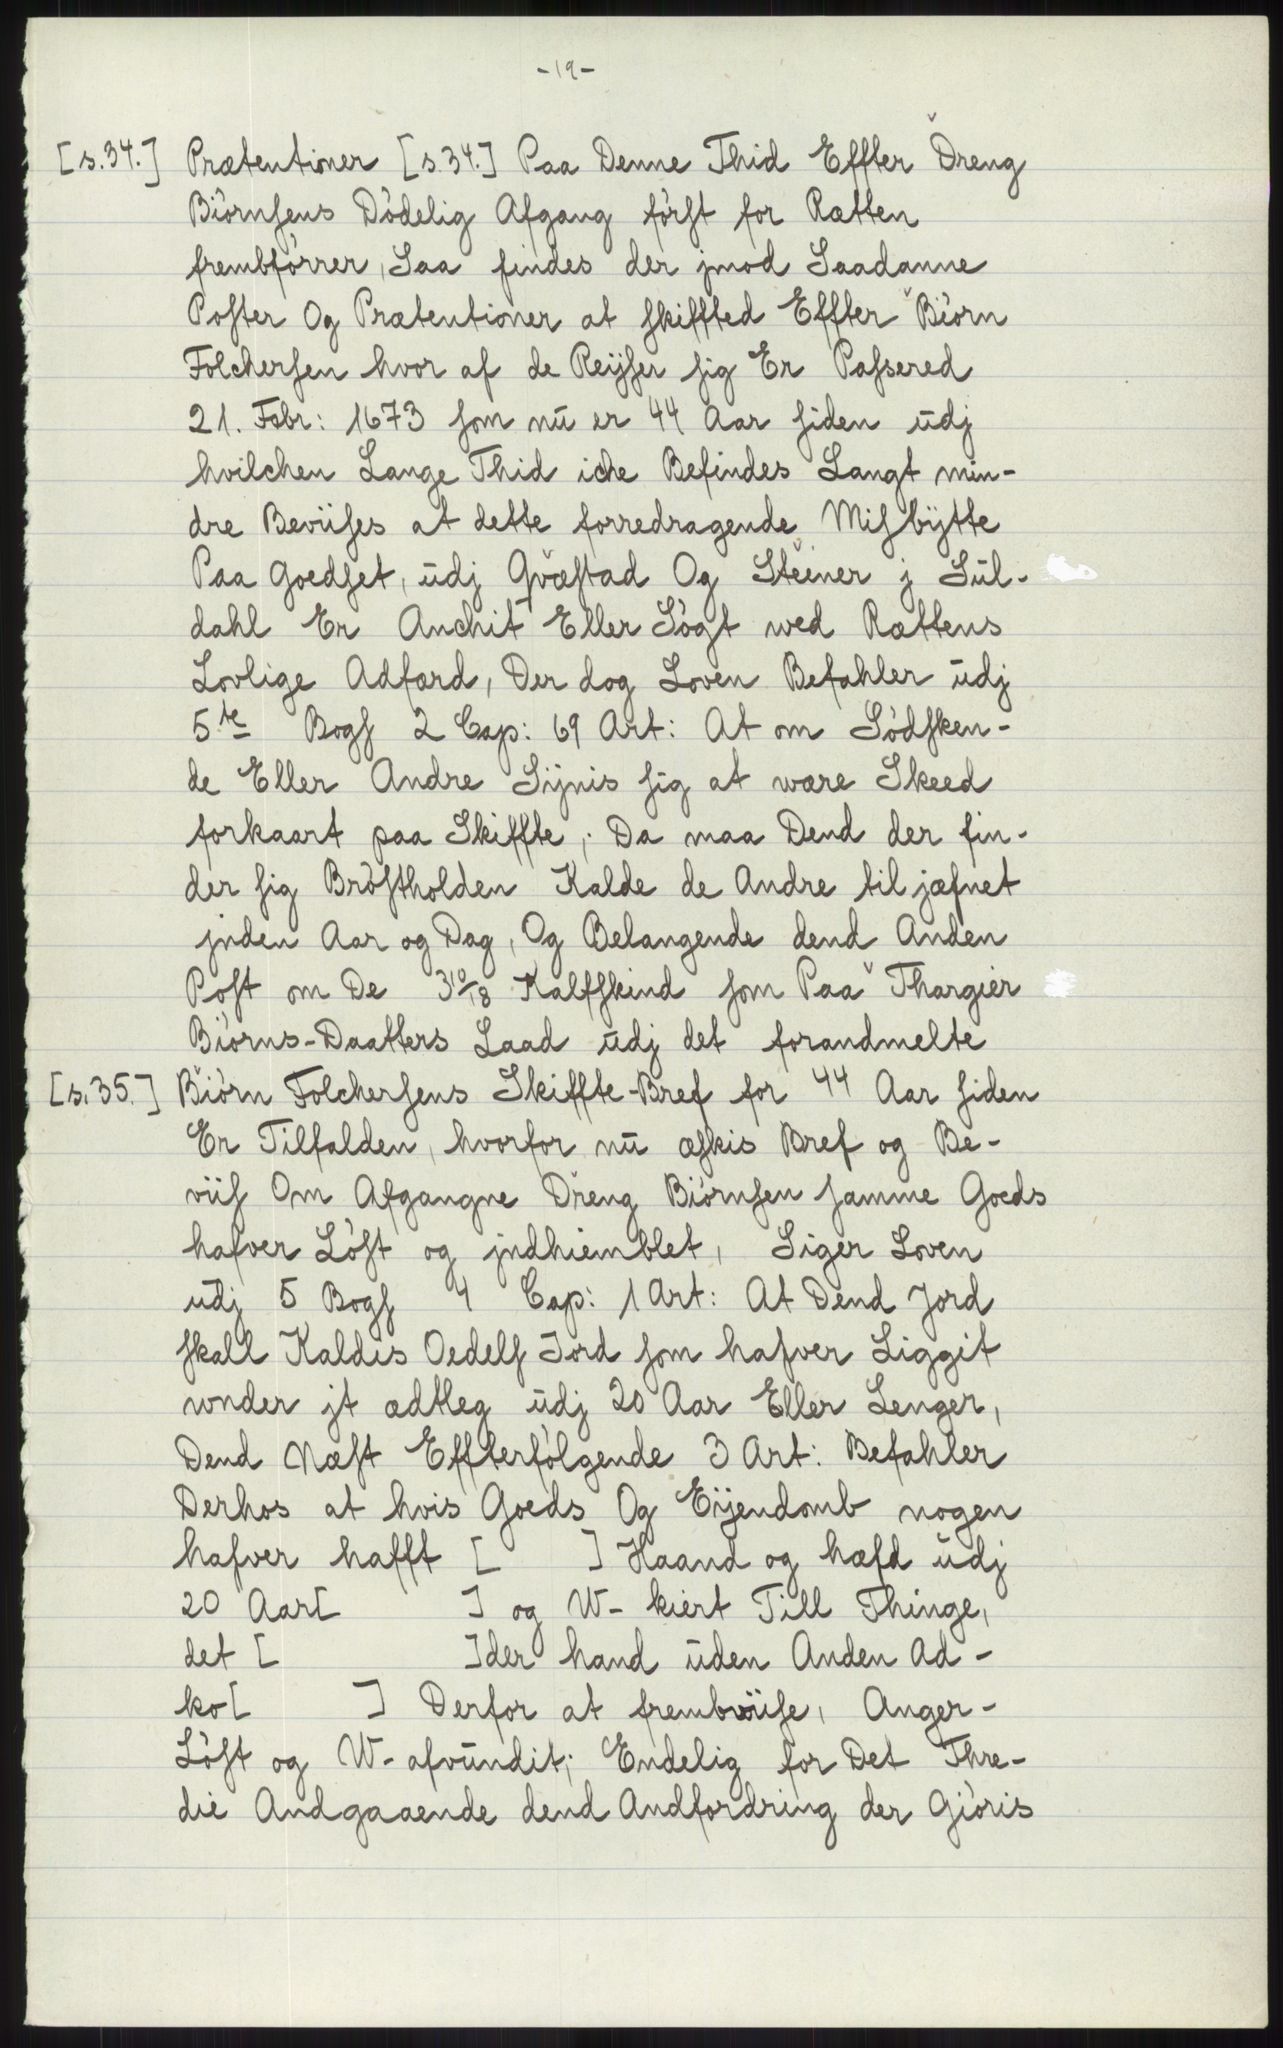 -19-
[s.34.] Prætentioner [s.34.] Paa Denne Thid Effter Dreng
Biörnsens Dödelig Afgang först for Rætten
frembförrer, Saa findes der jmod Saadanne
Poster Og Prætentioner at skifted Effter Biörn
Folchersen hvor af de Reyser sig Er Passered
21. Febr: 1673 som nu er 44 Aar siden udj
hvilchen Lange Thid iche Befindes Langt min-
dre Beviises at dette forredragende Misbytte
Paa Goedset, udj Qvæstad Og Steiner j Sul-
dahl Er Anchit Eller Sögt wed Rættens
Lovlige Adfærd, Der dog Loven Befahler udj
5te Bogs 2 Cap: 69 Art: At om Södsken-
de Eller Andre Siynis sig at være Skeed
forkaart paa Skiffte, Da maa Dend der fin-
der sig Bröstholden Kalde de Andre til jæfnet
jnden Aar og Dag, Og Belangende dend Anden
Post om De 3 10/18 Kalfskind som Paa Thargier
Biörns-Daatters Laad udj det forandmelte
[s.35.] Biörn Folchersens Skiffte-Bref for 44 Aar siden
Er Tilfalden, hvorfor nu æskis Bref og Be-
viis Om Afgangne Dreng Biörnsen samme Goeds
hafver Löst og jndhiemblet, Siger Loven
udj 5 Bogs 4 Cap: 1 Art: At Dend Jord
skall Kaldis Oedels Jord som hafver Liggit
wnder jt ædtleg udj 20 Aar Eller Lenger,
Dend Næst Effterfölgende 3 Art: Befahler
Derhos at hvis Goeds Og Eijendomb nogen
hafver hafft [ ] Haand og hæfd udj
20 Aar[ ] og W- kiert Till Thinge,
det [ ]der hand uden Anden Ad-
ko[ ] Derfor at frembviise, Anger-
Löst og W- afvundit; Endelig for Det Thre-
die Andgaaende dend Andfordring der Giöris